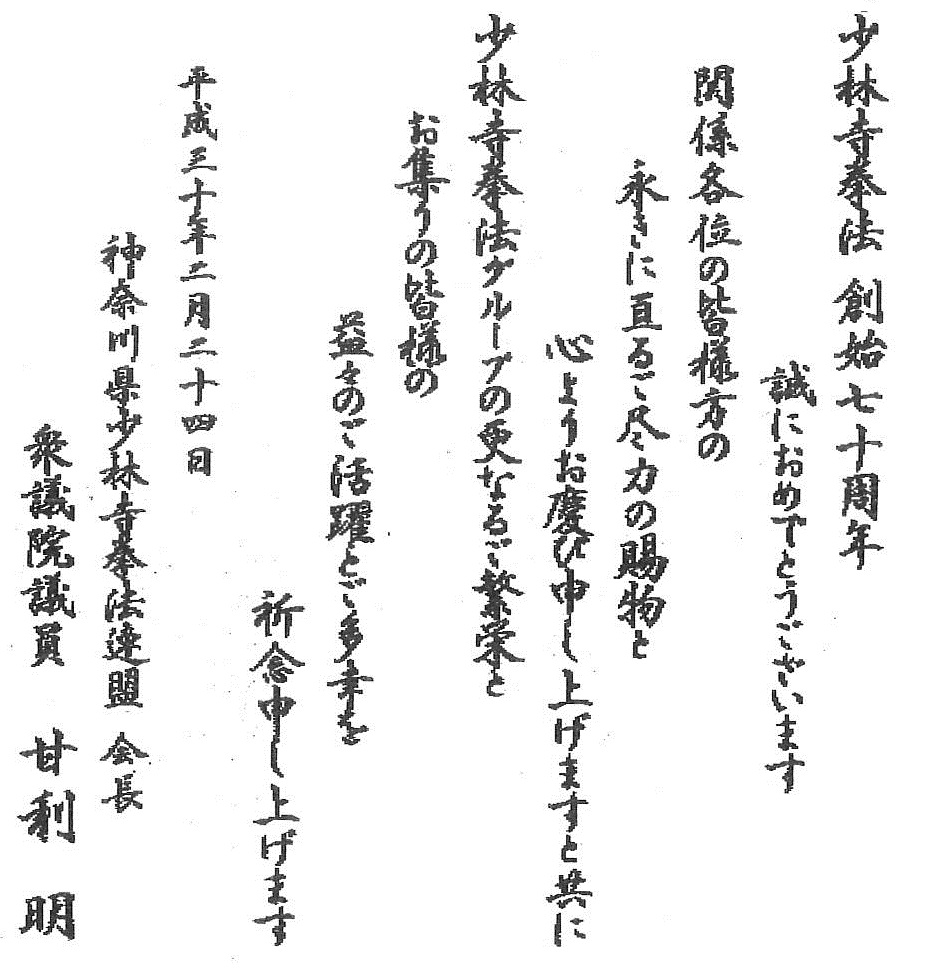 少林寺拳法 創始七十周年
誠におめでとうございます
関係各位の皆様方の
永きに亘るご尽力の賜物と
心よりお慶び申し上げますと共に
少林寺拳法グループの更なるご繁栄と
お集りの皆様の
益々のご活躍とご多幸を
祈念申し上げます
平成三十年二月二十四日
神奈川県少林寺拳法連盟 会長
衆議院議員 甘利 明